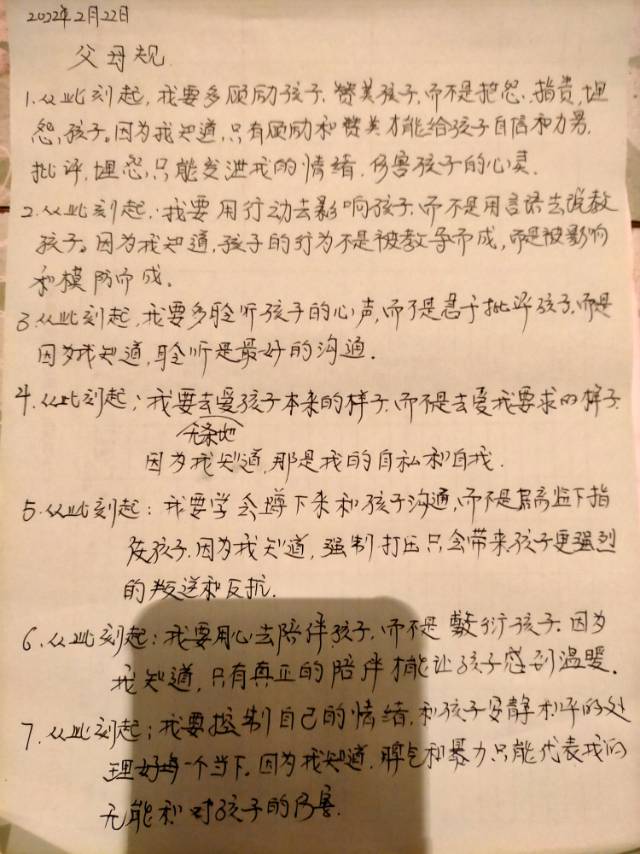 2022年2月22日
父母规
1.从此刻起,我要多顾励孩子.赞美孩子,而不是抱怨.指责,埋
怨,孩子。因为我知道,只有顾励和赞美才能给孩子自信和力另.
批评,埋怨,只能发泄我的情绪,伤害孩子的心灵.
2.从此刻起,我要用行动去影响孩子.而不是用言语去说教
孩子。因为我知道,孩子的行为不是被教导而成,而是被影响
和模防而成。
3.从此刻起,我要多聆听孩子的心声,而不是急于批评孩子.而是
因为我知道,聆听是最好的沟通.
4.从此刻起;我要去爱孩子本来的样子.而不是去爱我要求的样子.
无条地
因为我知道,那是我的自私和自我.
5.从此刻起:我要学会蹲下来和孩子沟通,而不是居高监下指
孩子.因为我知道,强制打压只会带来孩子更强烈
的叛送和反抗.
6.从此刻起:我要用心去陪伴孩子.而不是敷衍孩子.因为
我知道,只有真正的陪伴才能让孩子感到温暖.
7.从此刻起;我要控制自己的情绪,和孩子安静和平的处
理好每一个当下.因为我知道.脾气和暴力只能代表我的
无能和对孩子的伤害.